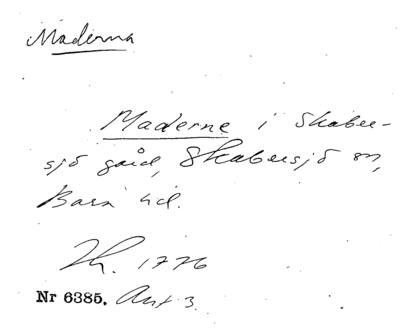 Maderna
Maderne i Skaber-
sjö gård, Skabersjö sn,
Bara hd.
Th. 1776
Nr 6385. Ant 3.